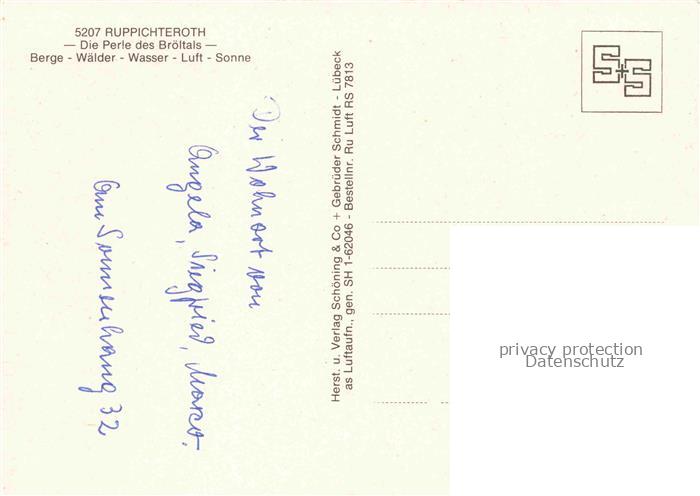 5207 RUPPICHTEROTH
— Die Perle des Bröltals —
Berge - Wälder - Wasser - Luft - Sonne
Der Wohnort von
Angela, Siegfried, Marco.
Am Sonnenhang 32
Herst. u. Verlag Schöning & Co + Gebrüder Schmidt - Lübeck
as Luftaufn., gen. SH 1-62046 - Bestellnr. Ru Luft RS 7813
S+S
privacy protection
Datenschutz